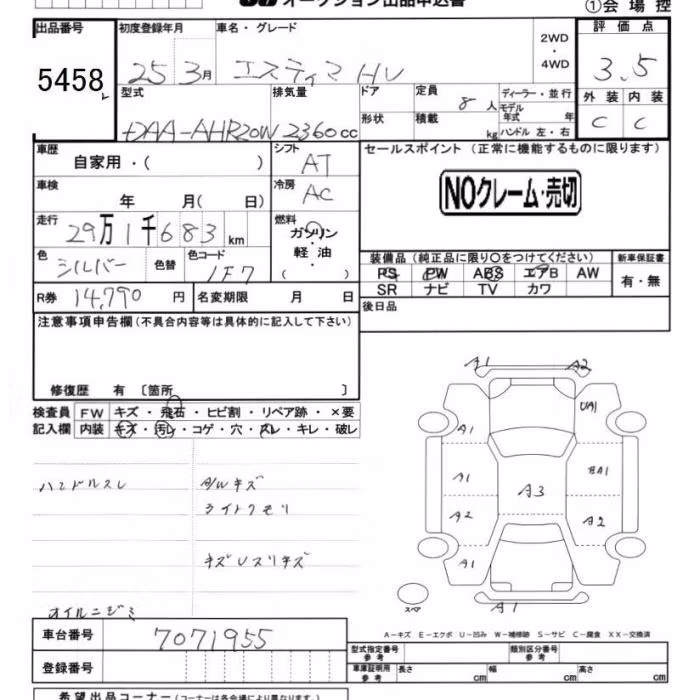 オークション出品申込書
①会場控
出品番号 初度登録年月 車名・グレード 評価点
5458 25 3月 エスティマ HV 2WD・4WD 3.5
型式 排気量 ドア 定員 8人 ディーラー・並行 外装 内装
DAA-AHR20W 2360cc 形状 積載 kg モデル年式 年 ハンドル 左・右 C C
車歴 シフト セールスポイント (正常に機能するものに限ります)
自家用・( ) AT
車検 冷房 NOクレーム・売切
年 月( 日) AC
走行 燃料
29万1千683km ガソリン
色 色替 色コード 軽油 装備品 (純正品に限り〇をつけてください) 新車保証書
シルバー 1F7 ( ・ ) PS PW ABS エアB AW 有・無
R券 14,790円 名変期限 月 日 SR ナビ TV カワ
注意事項申告欄 (不具合内容等は具体的に記入して下さい) 後日品
修復歴 有 〔箇所 〕
検査員 FW キズ・飛石・ヒビ割・リペア跡・×要
記入欄 内装 キズ・汚レ・コゲ・穴・スレ・キレ・破レ
ハンドルスレ A/Wキズ
ライトクモリ
オイルニジミ
A1 A2
A1 UA1
A1 A3
A2 A2
A1
スペア A1
A-キズ E-エクボ U-凹み W-補修跡 S-サビ C-腐食 XX-交換済
車台番号 7071955 型式指定番号 参考 類別区分番号 参考
登録番号 車庫証明用 参考 長さ cm 幅 cm 高さ cm
希望出品コーナー (コーナーは各会場により異なります。)